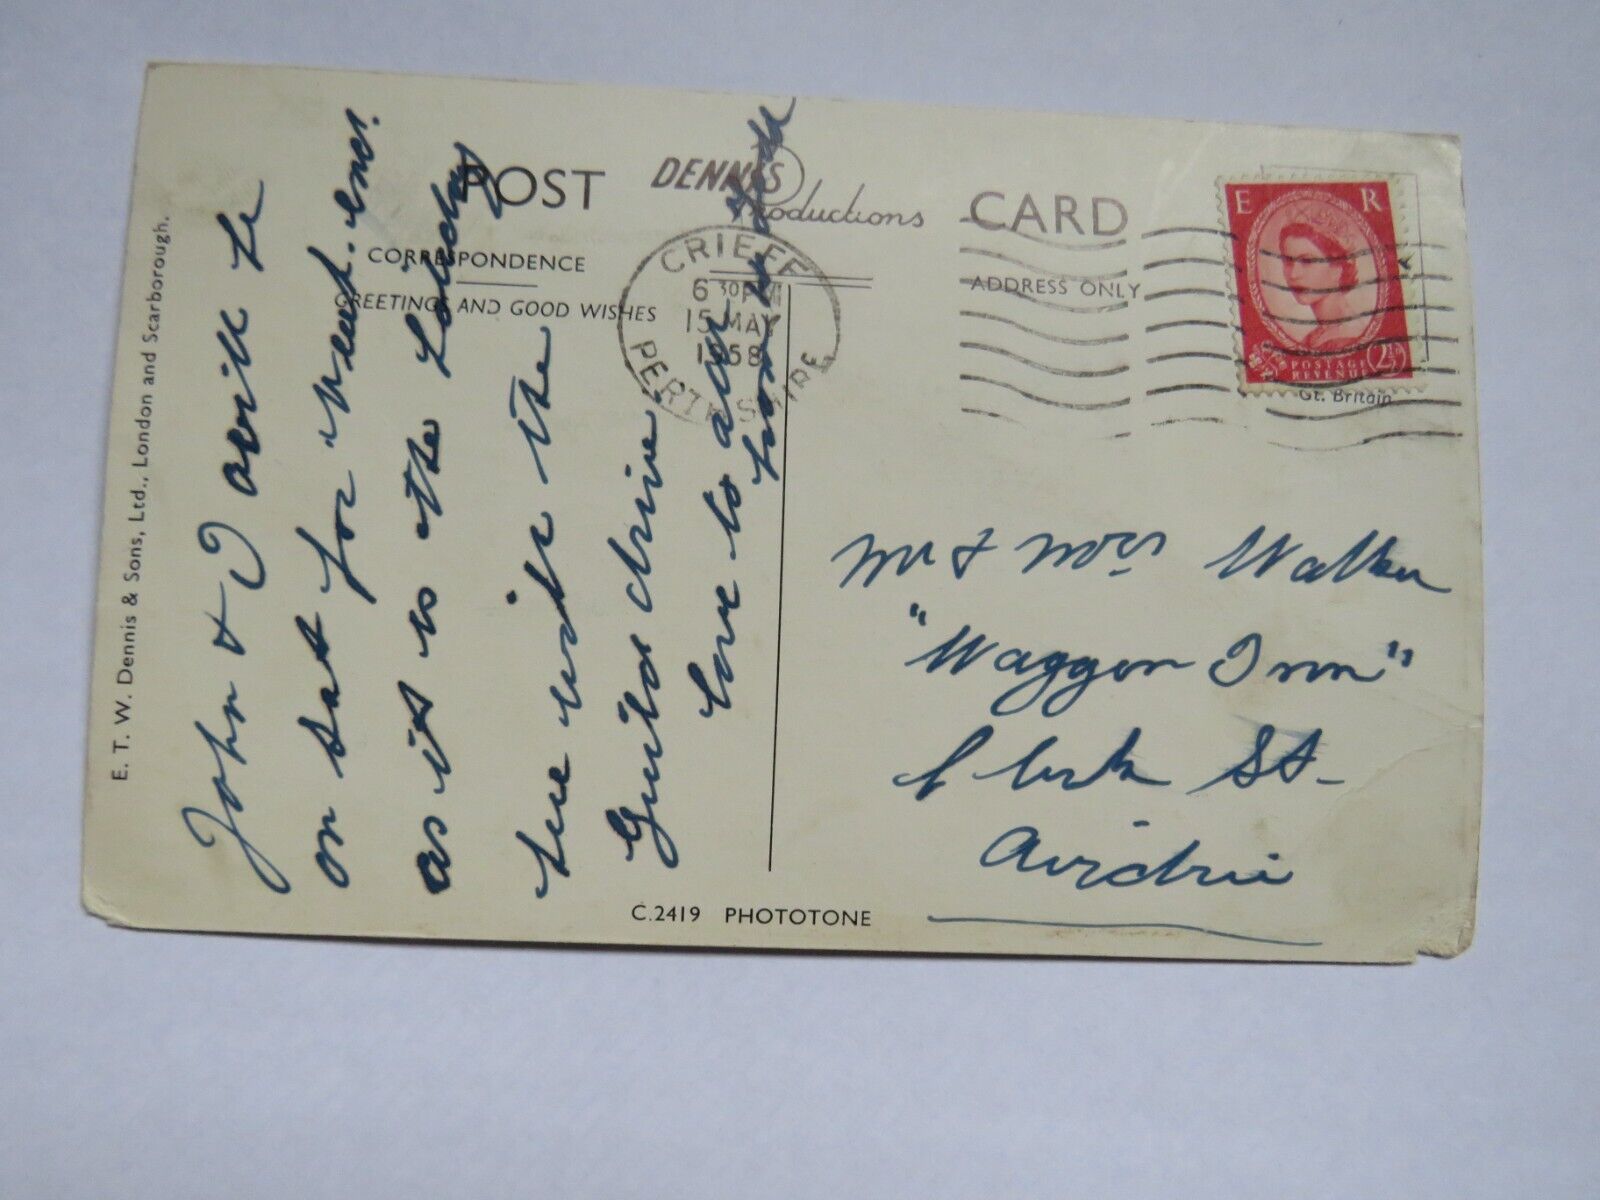 POST
DENNIS
Productions
CARD
CORRESPONDENCE
GREETINGS AND GOOD WISHES
ADDRESS ONLY
CRIEFF
6 30PM
15 MAY
1958
PERTHSHIRE
E R
POSTAGE
REVENUE
2½D
Gt. Britain
John & I will be
on Sat for week-end.
as it is the holiday
here with the
Guild drive.
love to all
from
Mr & Mrs Walker
"Waggon Inn"
Clerk St.
Airdrie
E. T. W. Dennis & Sons, Ltd., London and Scarborough.
C.2419 PHOTOTONE